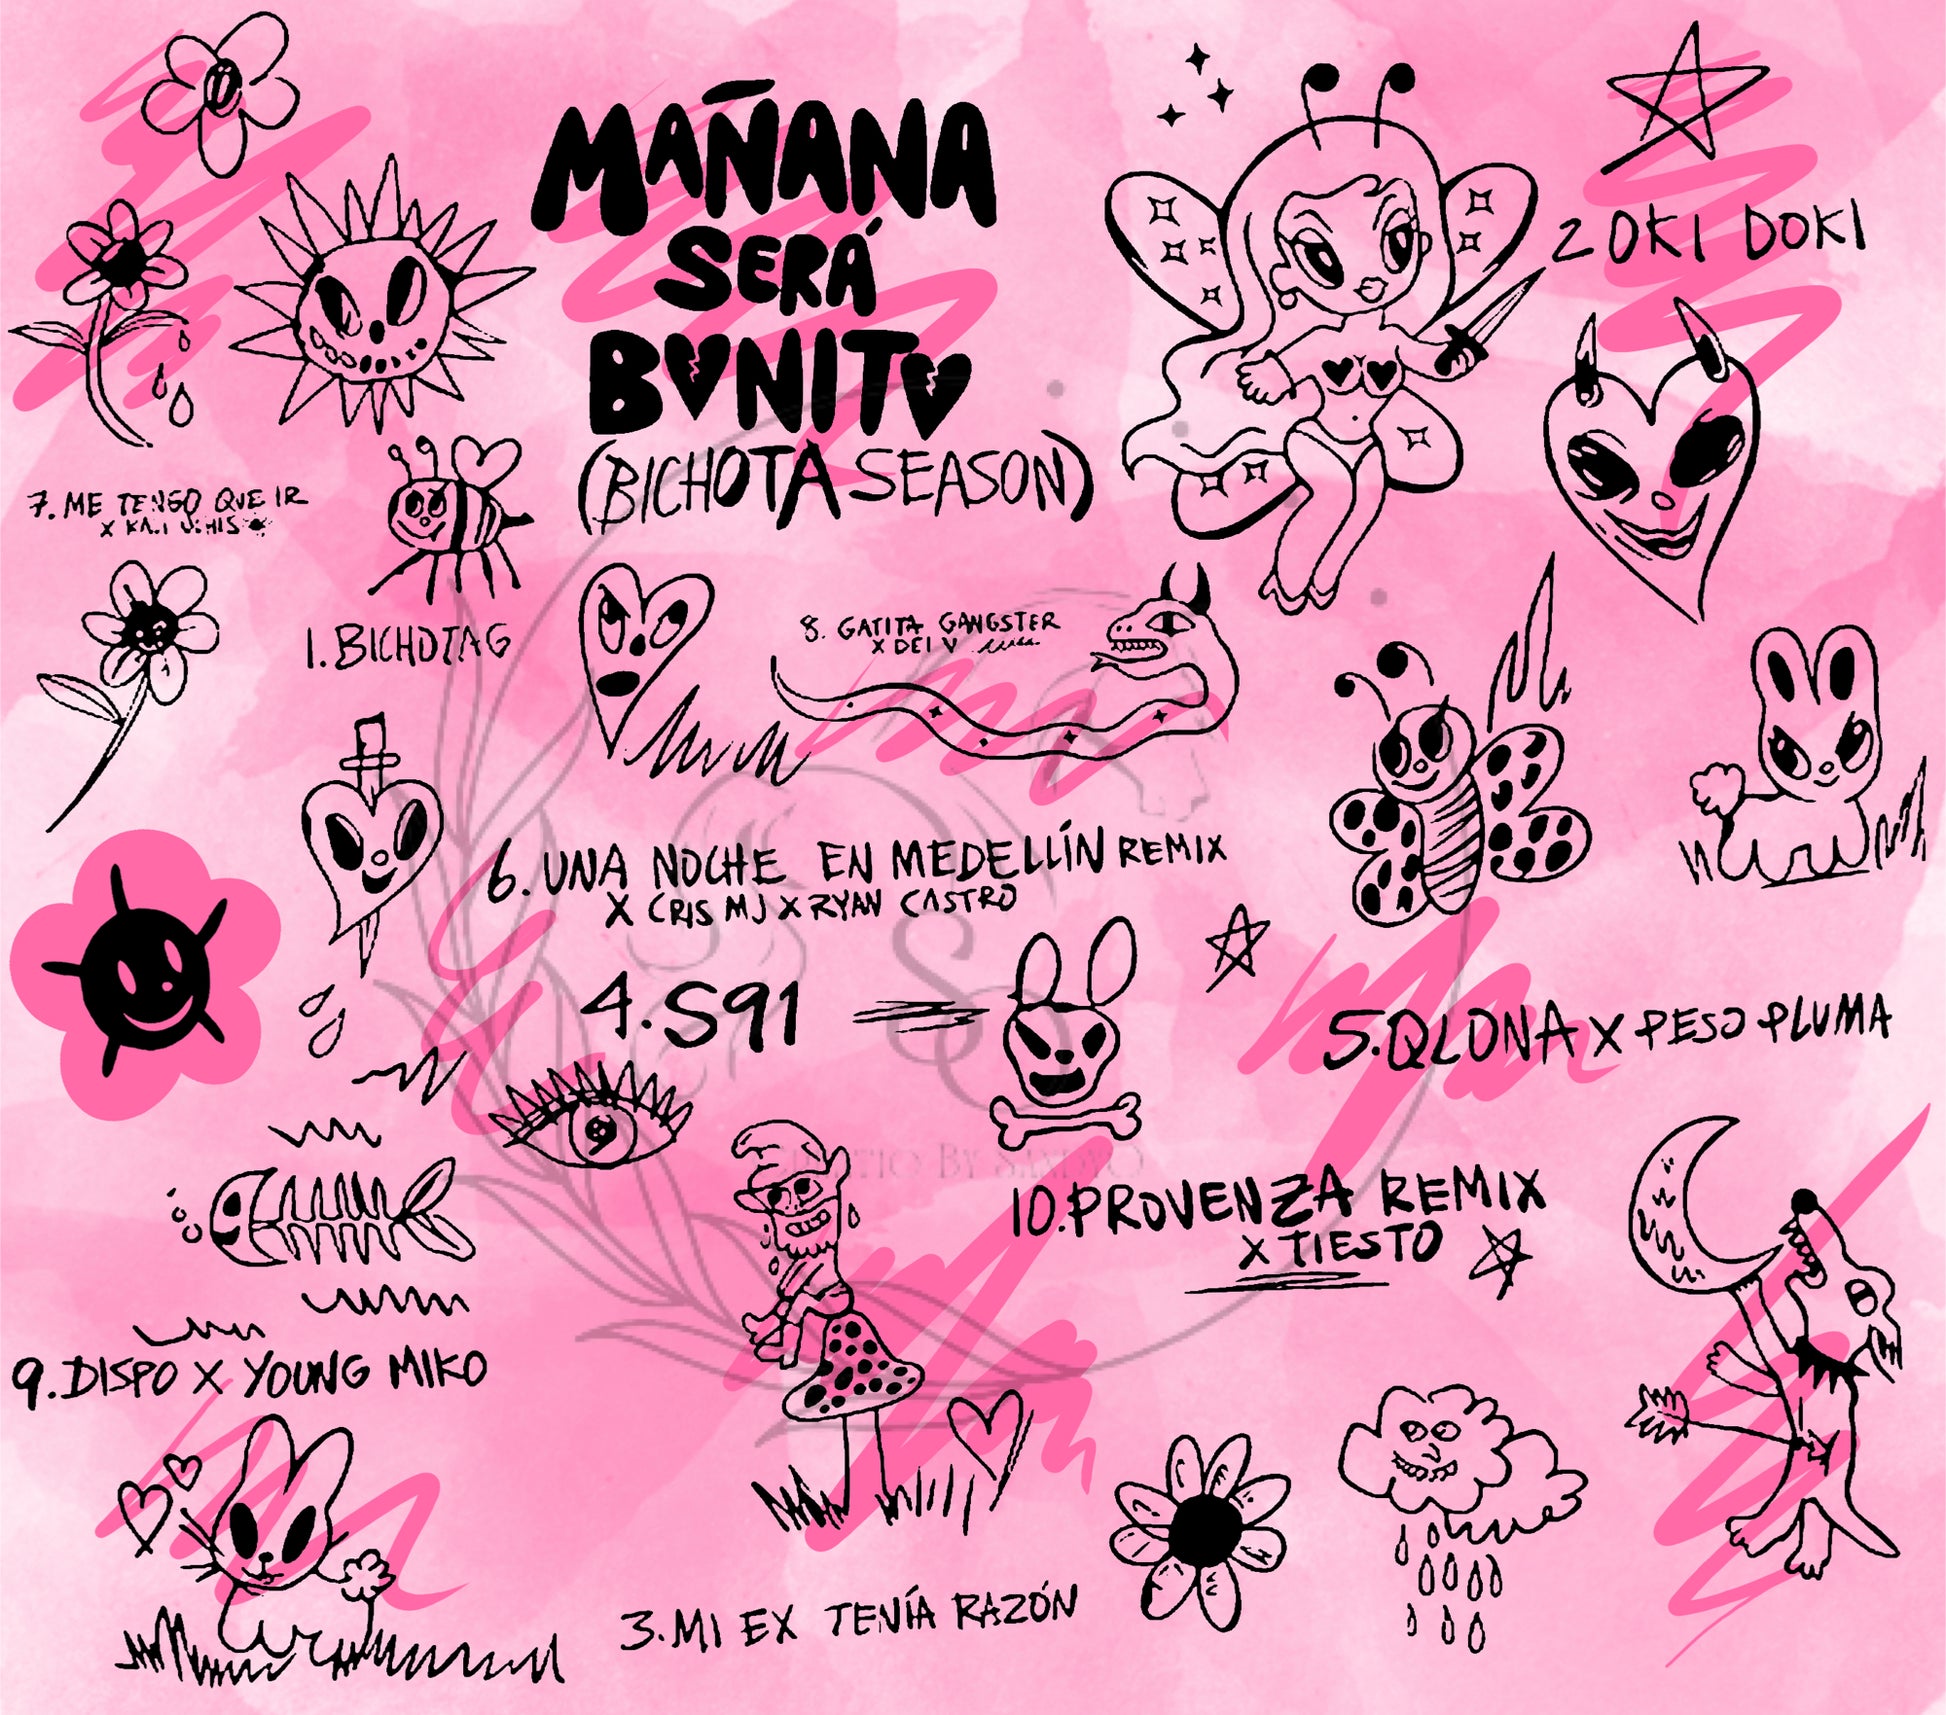 MAÑANA
SERÁ
BONITO
(BICHOTA SEASON)
2 OKI DOKI
7. ME TENGO QUE IR
X
1. BICHOTAG
8. GATITA GANGSTER
X DEI V
6. UNA NOCHE EN MEDELLÍN REMIX
X CRIS MJ X RYAN CASTRO
4. S91
5. QLONA X PESO PLUMA
10. PROVENZA REMIX
X TIESTO
9. DISPO X YOUNG MIKO
3. MI EX TENÍA RAZÓN